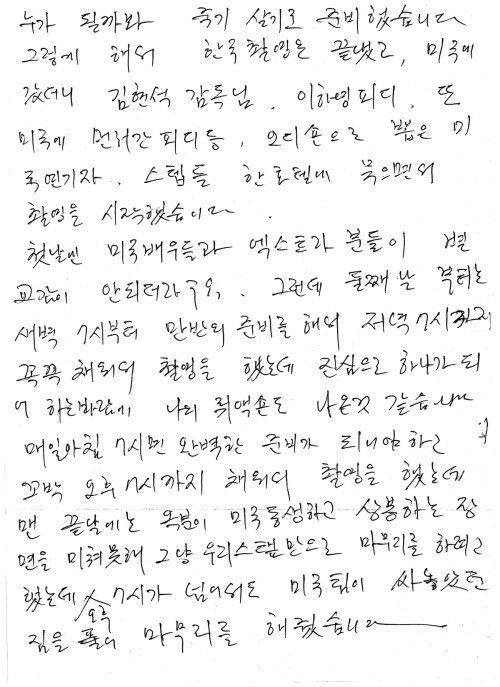 누가 될까봐 죽기 살기로 준비했습니다
그렇게 해서 한국촬영은 끝냈고, 미국에
갔더니 김현석 감독님, 이하영피디, 또
미국에 먼저간 피디등, 오디숀으로 뽑은 미
국연기자, 스텝들 한 호텔에 묵으면서
촬영을 시작했습니다.
첫날엔 미국배우들과 엑스트라 분들이 별
교감이 안되더라구요. 그런데 둘째날 부터는
새벽 7시부터 만반의 준비를 해서 저녁 7시까지
꼭꼭 채워서 촬영을 했는데 진심으로 하나가 되
어 하는바람에 나의 뤼액숀도 나온것 같습니다
매일아침 7시면 완벽한 준비가 되니암하고
꼬박 오후 7시까지 채워서 촬영을 했는데
맨 끝날에는 옥분이 미국동생하고 상봉하는 장
면을 미쳐못해 그냥 우리스텝만으로 마무리를 하려고
했는데 오후 7시가 넘어서도 미국팀이 싸놓았던
짐을 풀어 마무리를 해줬습니다